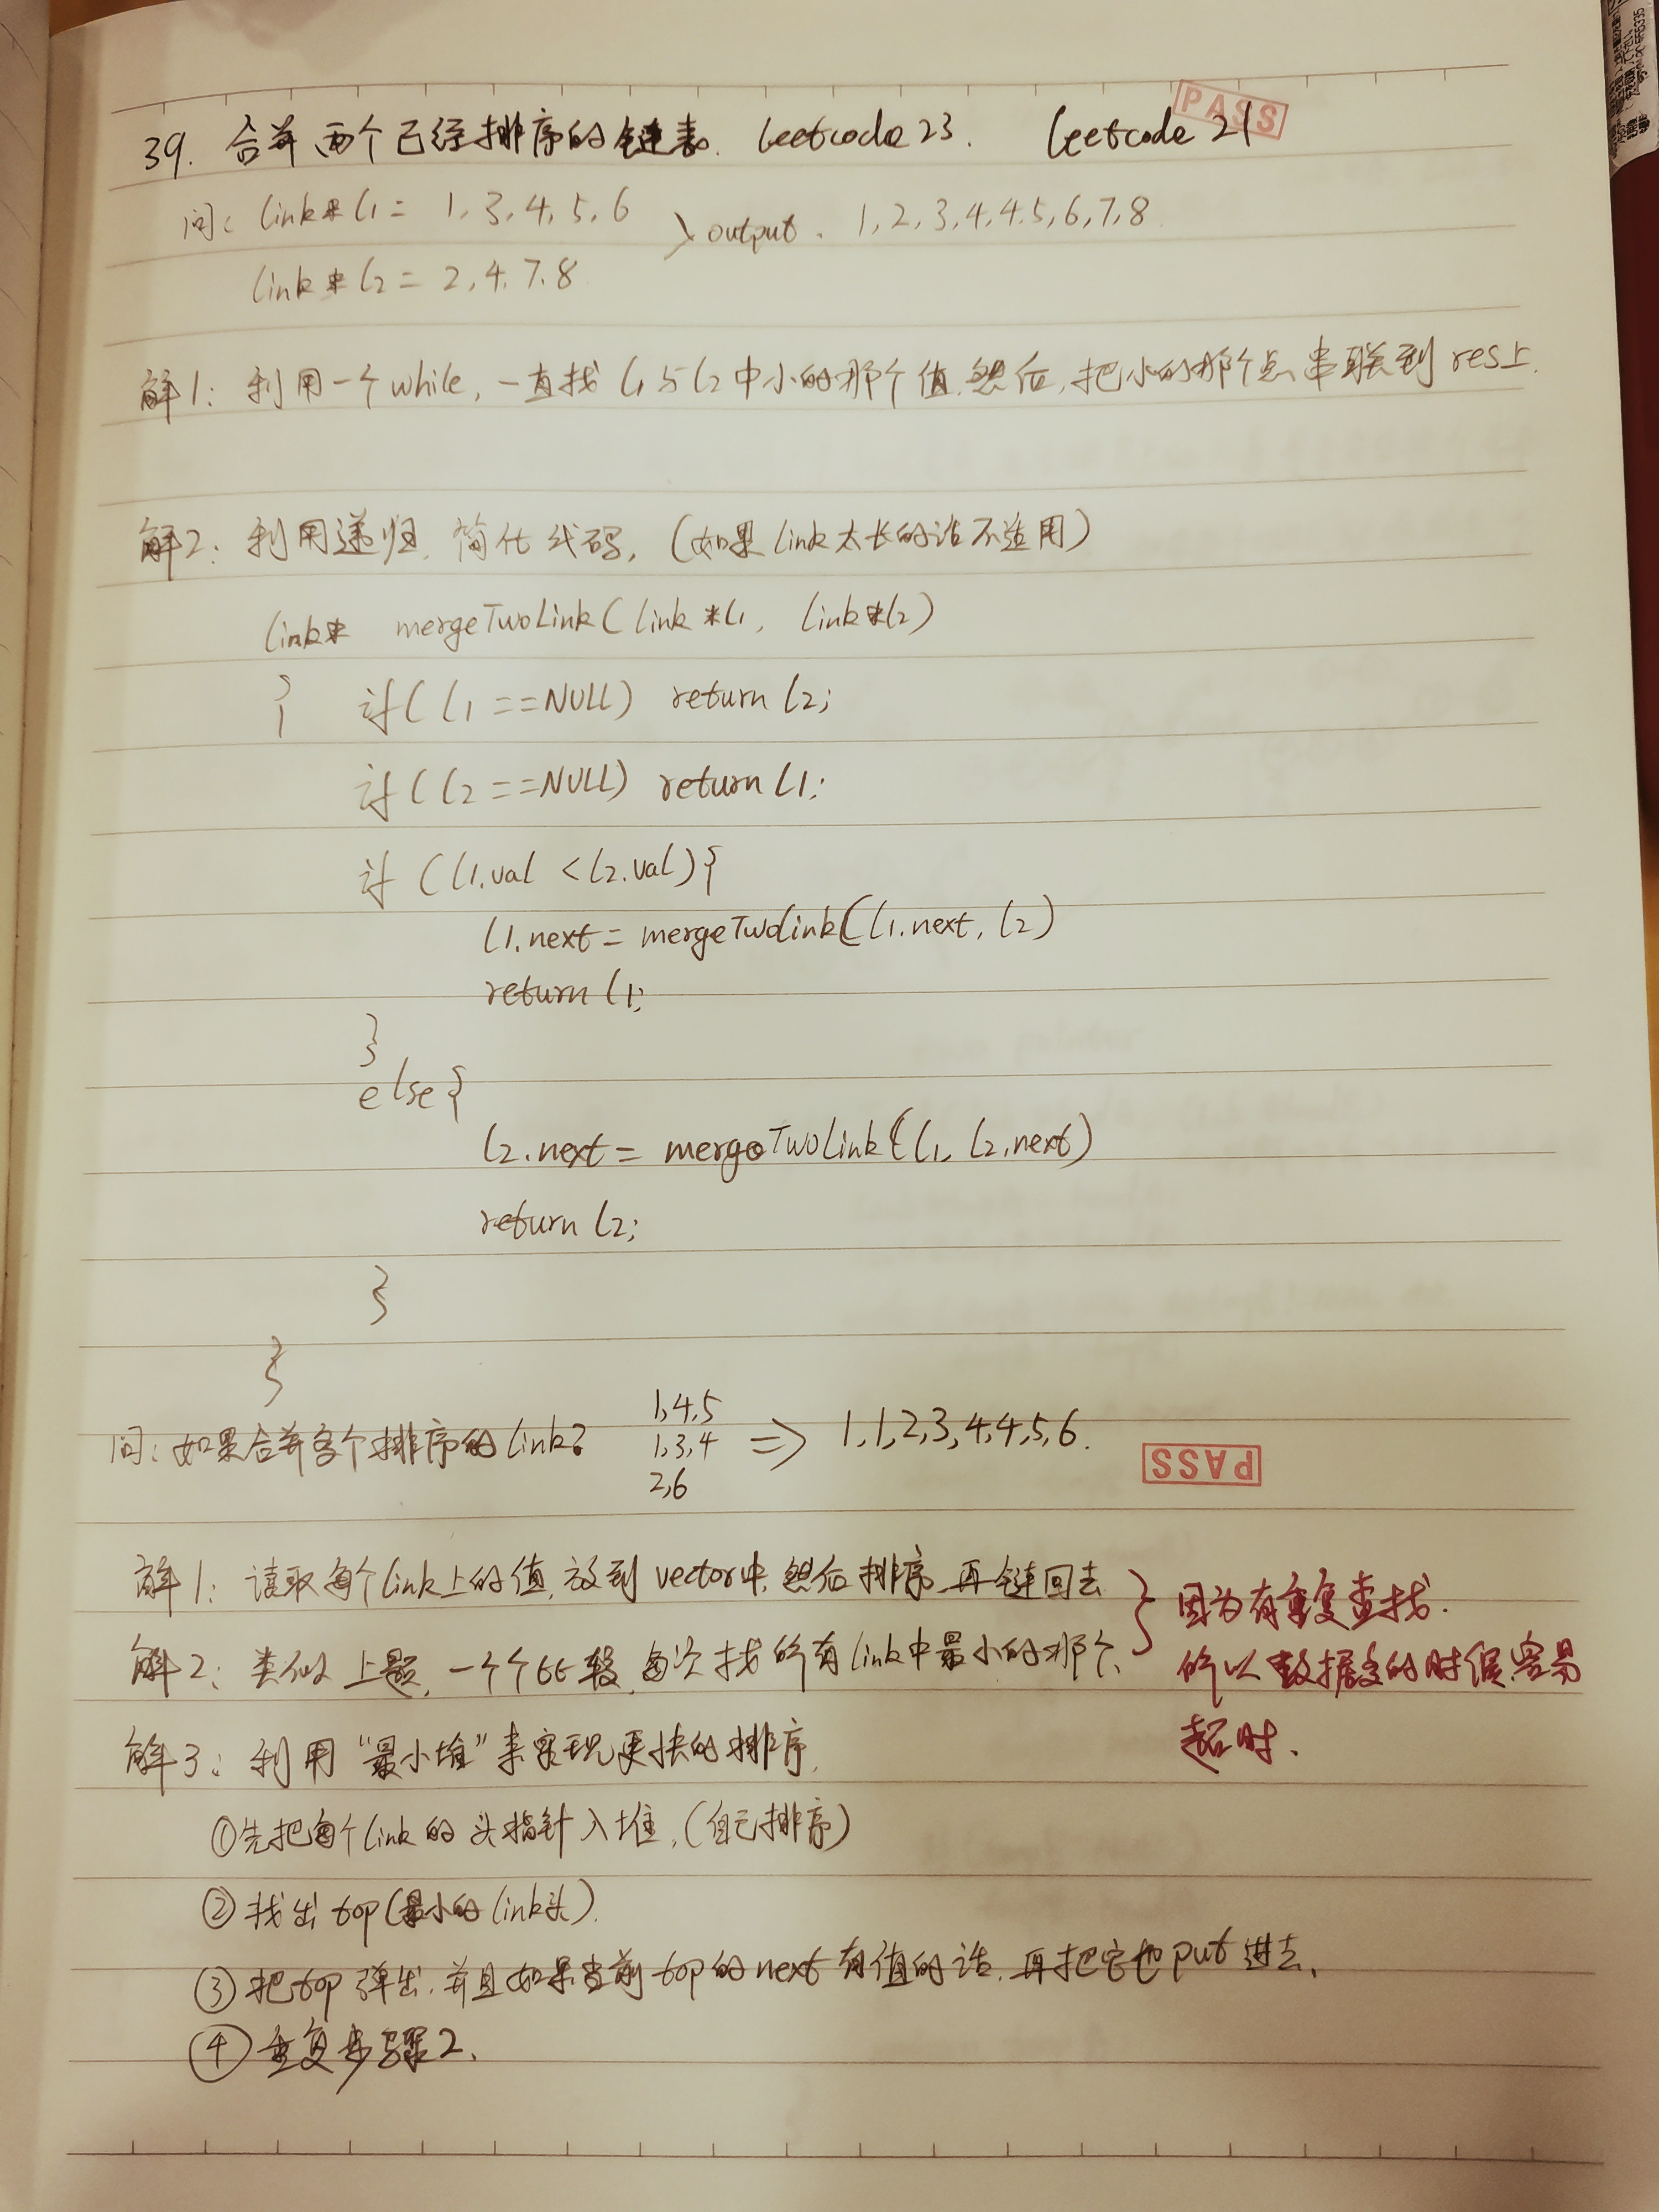 39. 合并两个已经排序的链表. leetcode 23. leetcode 21
PASS
问: link* l1 = 1, 3, 4, 5, 6 } output. 1, 2, 3, 4, 4, 5, 6, 7, 8
link* l2 = 2, 4, 7, 8
解1: 利用一个while, 一直找 l1与l2 中小的那个值, 然后, 把小的那个点串联到 res上.
解2: 利用递归, 简化代码, (如果link太长的话不适用)
link* mergeTwoLink(link *l1, link *l2)
{ if( l1 ==NULL) return l2;
if( l2 ==NULL) return l1;
if (l1.val < l2.val){
l1.next = mergeTwoLink(l1.next, l2)
return l1;
}
else{
l2.next = mergeTwoLink(l1, l2.next)
return l2;
}
}
问: 如果合并多个排序的link?
1,4,5
1,3,4
2,6
=> 1,1,2,3,4,4,5,6.
PASS
解1: 读取每个link上的值, 放到vector中, 然后排序, 再链回去
解2: 类似上题, 一个个比较, 每次找所有link中最小的那个
} 因为有重复查找.
所以数据多的时候容易
超时.
解3: 利用"最小堆"来实现更快的排序.
①先把每个link的头指针入堆, (自己排序)
②找出top(最小的link头).
③把top弹出, 并且如果当前top的next有值的话, 再把它也put进去,
④重复步骤2.